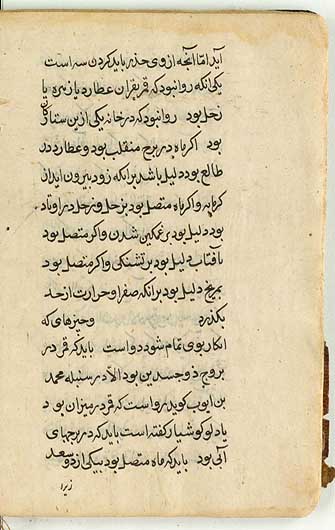 آید اما آنچه ازوی حذر باید کردن سه است
یکی انکه روا نبود که قمر بقران عطارد یا زهره یا
زحل بود روا نبود که در خانه یکی ازین ستارکان
بود اکر ماه در برج منقلب بود و عطارد در
طالع بود دلیل باشد بر انکه زود بیرون اید از
کرمابه و اکر ماه متصل بود بزحل و زحل در اوتاد
بود دلیل بود بر غمکین شدن و اکر متصل بود
بافتاب دلیل بود بر تشنکی و اکر متصل بود
بمریخ دلیل بود بر انکه صفرا و حرارت از حد
بکذرد وچیزهای که
انکار بوی تمام شود دو است باید که قمر در
بروج ذو جسدین بود الا در سنبله محمد
بن ایوب کوید رواست که قمر در میزان بود
یا دلو کوشیار کفته است باید که در برجهای
آبی بود باید که ماه متصل بود بیکی از دو سعد
زیرا